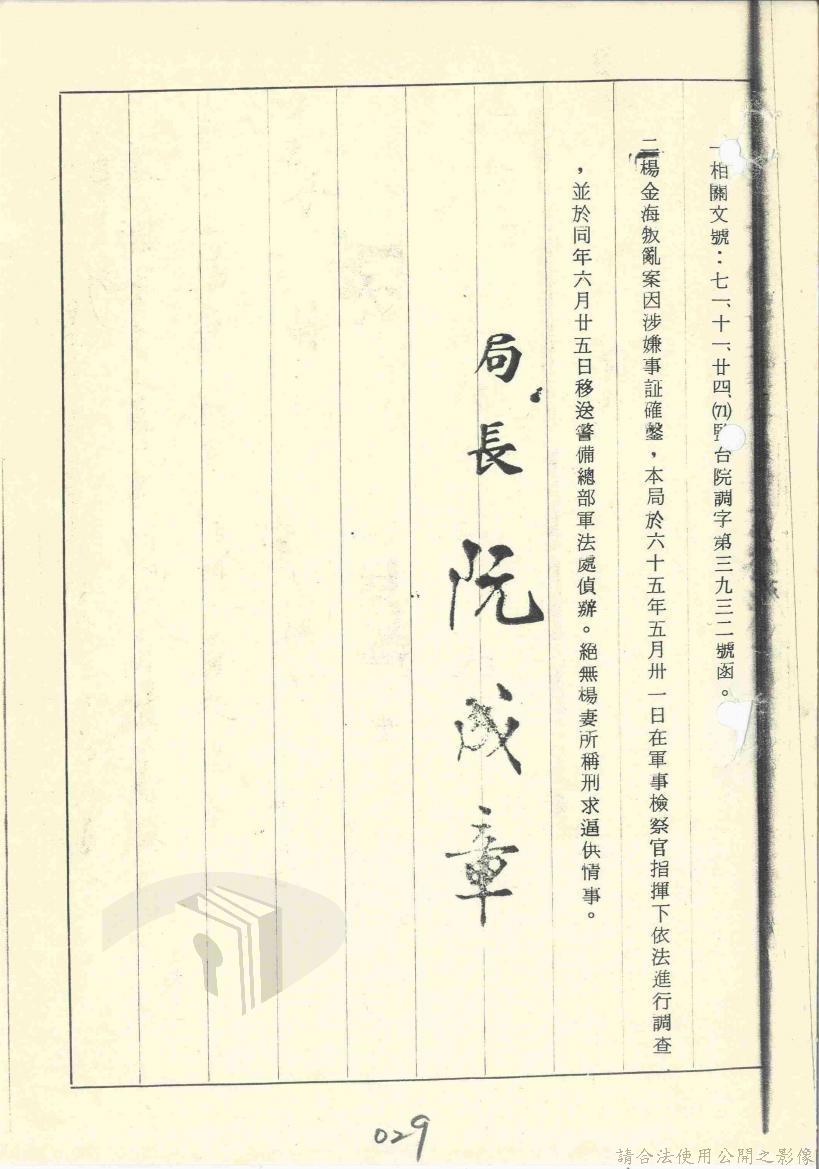 一相關文號：七一、十一、廿四、(71)監台院調字第三九三二號函。
二楊金海叛亂案因涉嫌事証確鑿，本局於六十五年五月卅一日在軍事檢察官指揮下依法進行調查
，並於同年六月廿五日移送警備總部軍法處偵辦。絕無楊妻所稱刑求逼供情事。
局長阮成章
029
請合法使用公開之影像